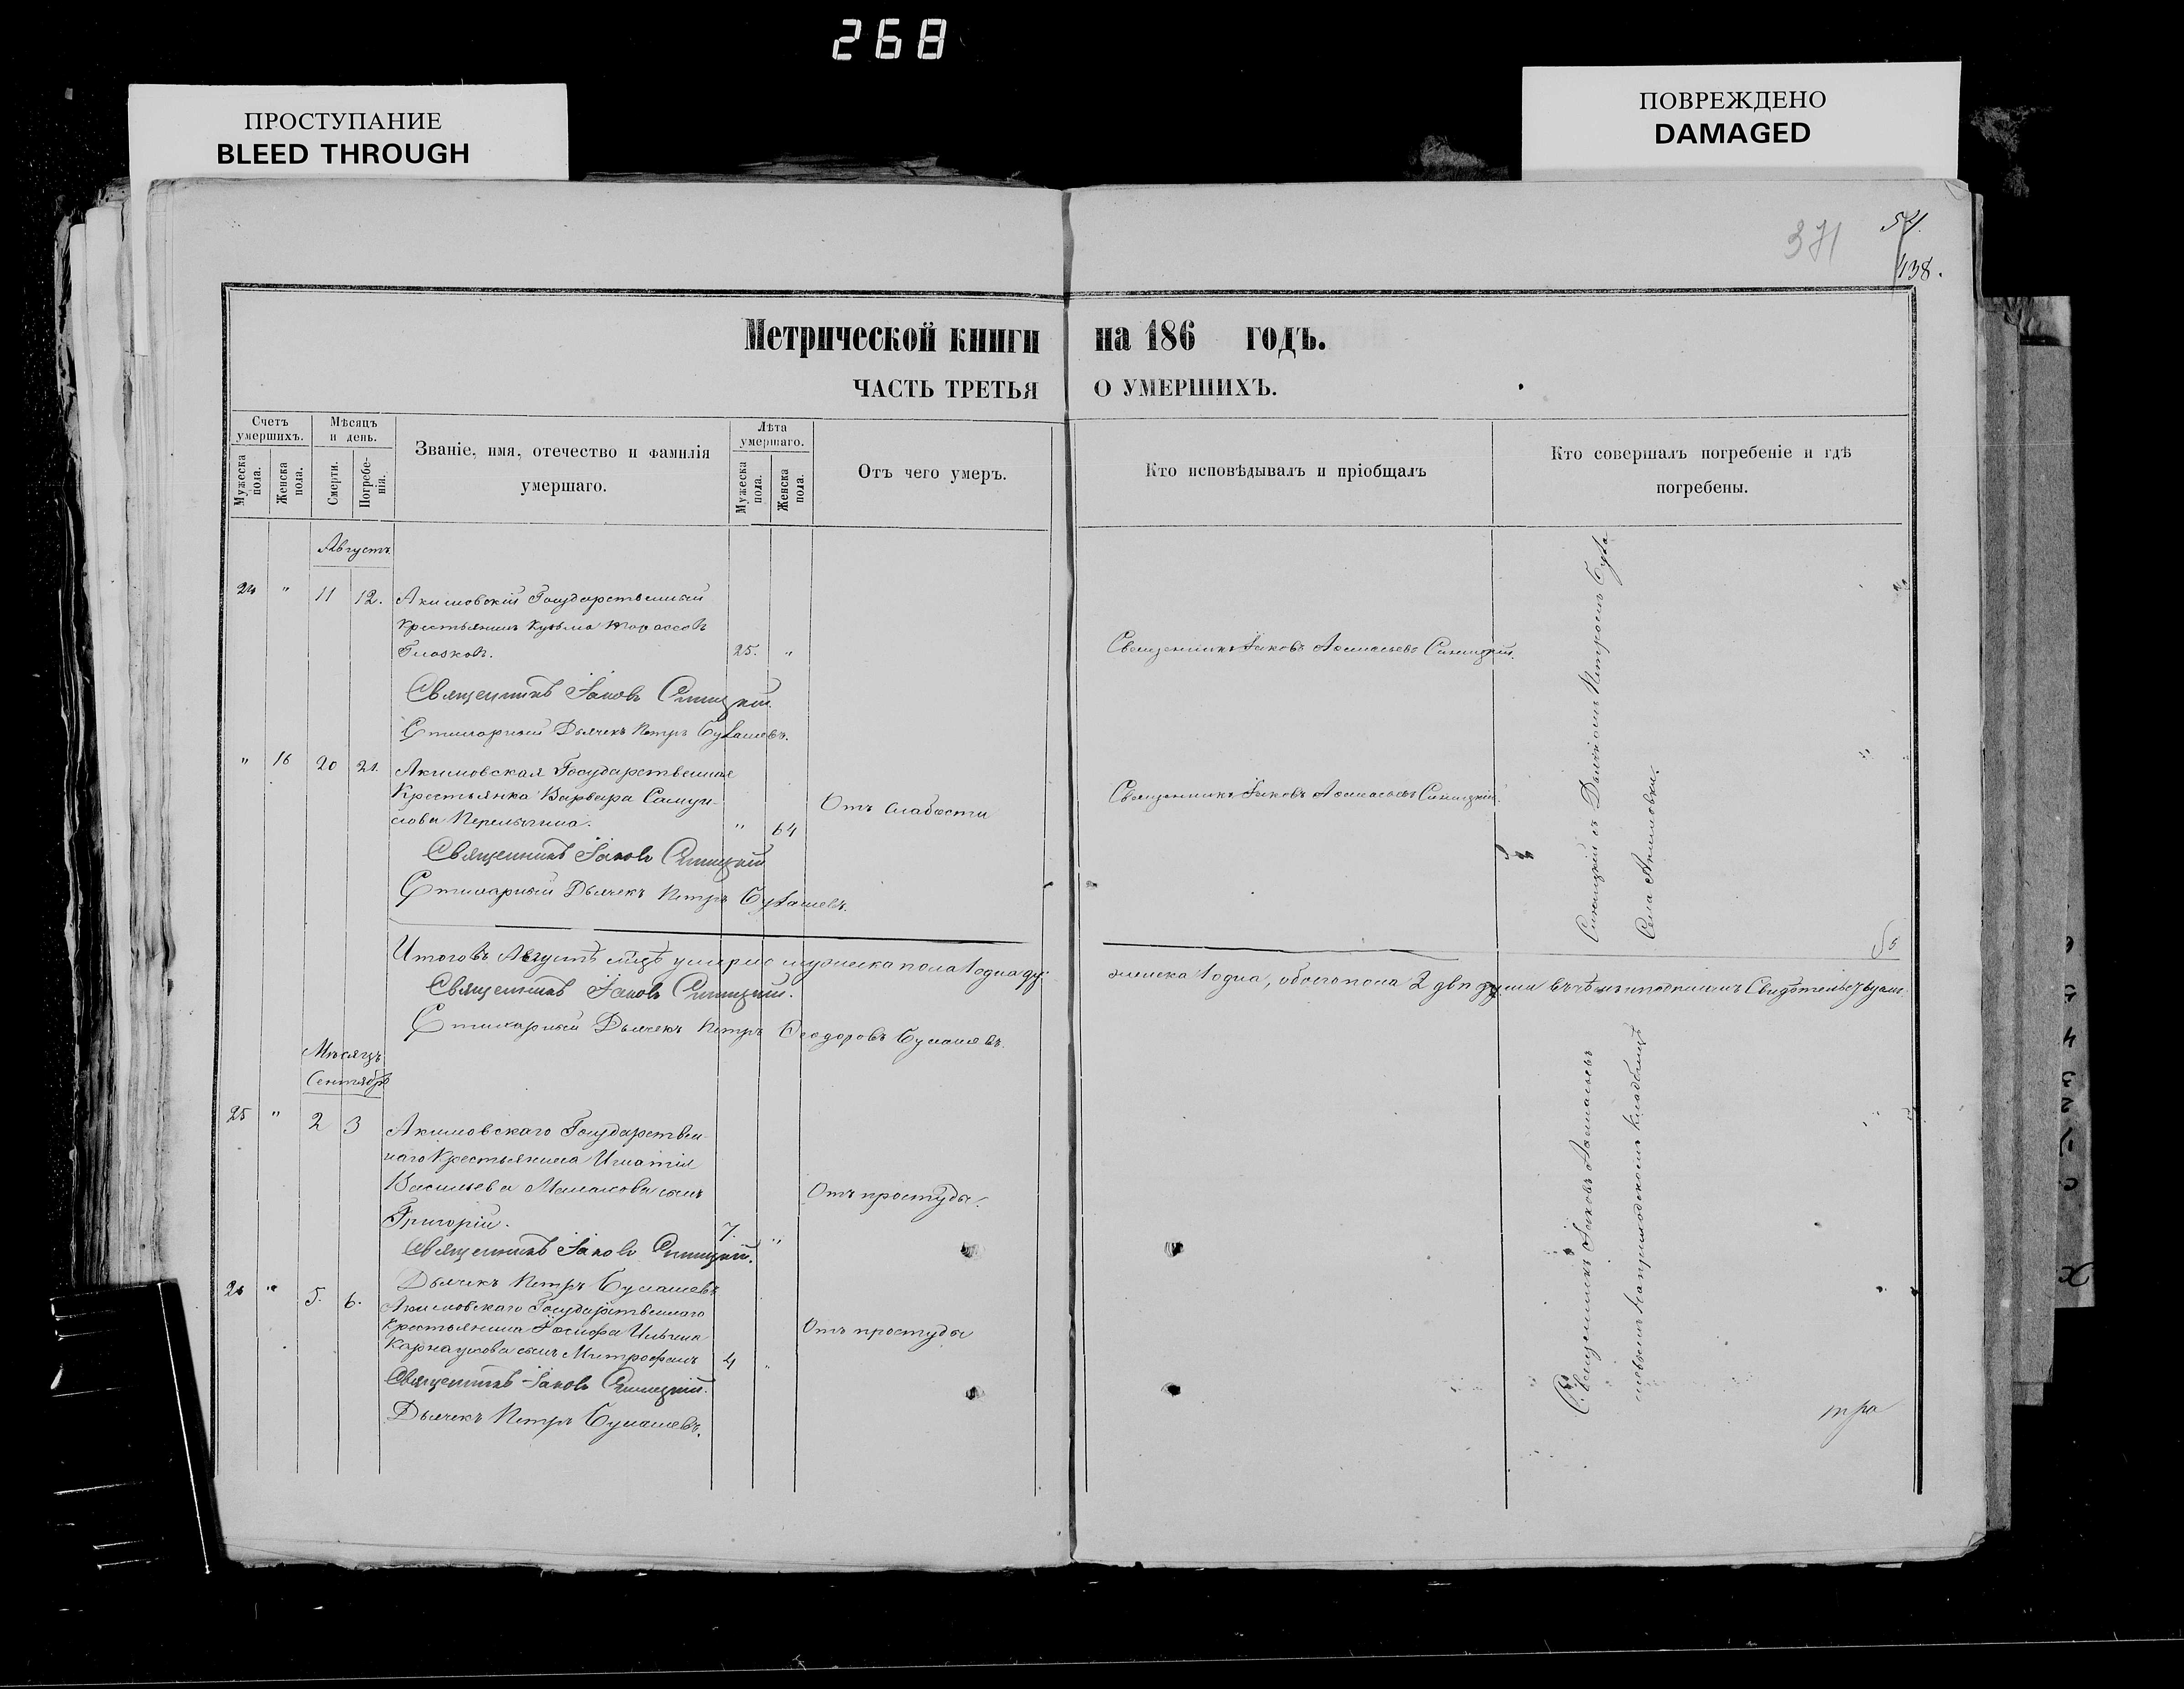 268
ПРОСТУПАНИЕ
BLEED THROUGH
ПОВРЕЖДЕНО
DAMAGED
371
54.
138.
Метрической книги на 186 годъ.
ЧАСТЬ ТРЕТЬЯ О УМЕРШИХЪ.
Счетъ умершихъ.
Мужеска пола.
Женска пола.
Мѣсяцъ и день.
Смерти.
Погребенія.
Званіе, имя, отечество и фамилія
умершаго.
Лѣта умершаго.
Мужеска пола.
Женска пола.
Отъ чего умеръ.
Кто исповѣдывалъ и пріобщалъ
Кто совершалъ погребеніе и гдѣ
погребены.
Августъ
24 " 11 12. Акимовскій Государственный
Крестьянинъ Кузьма Тарассовъ
25. "
Священникъ Іаковъ Синицкій.
Священникъ Іаковъ Синицкій.
Стихарный Дьячекъ Петръ
" 16 20 21. Акимовская Государственная
Крестьянка Варвара Самуи-
лова " 64
Отъ слабости
Священникъ Іаковъ Синицкій.
Священникъ Іаковъ Синицкій
Стихарный Дьячекъ Петръ
Синицкій съ Дьячкомъ Петромъ
Села Акимовки.
Итого въ Августѣ мцѣ умерло мужеска пола 1 одна ду: женска 1 одна, обоего пола 2 двѣ души въ чемъ и подписомъ Свидѣтельствуемъ.
Священникъ Іаковъ Синицкій.
Стихарный Дьячекъ Петръ Ѳеодоровъ
Мѣсяцъ
Сентябрь
25 " 2 3 Акимовскаго Государствен-
наго Крестьянина Игнатія
Васильева сынъ
Григорій. 7. "
Отъ простуды.
Священникъ Іаковъ Синицкій.
Дьячекъ Петръ
26 " 5. 6. Акимовскаго Государственнаго
Крестьянина Іосифа Ильина
Карнаухова сынъ Митрофанъ 4 "
Отъ простуды
Священникъ Іаковъ Синицкій.
Дьячекъ Петръ
Священникъ Іаковъ
на приходскомъ кладбищѣ